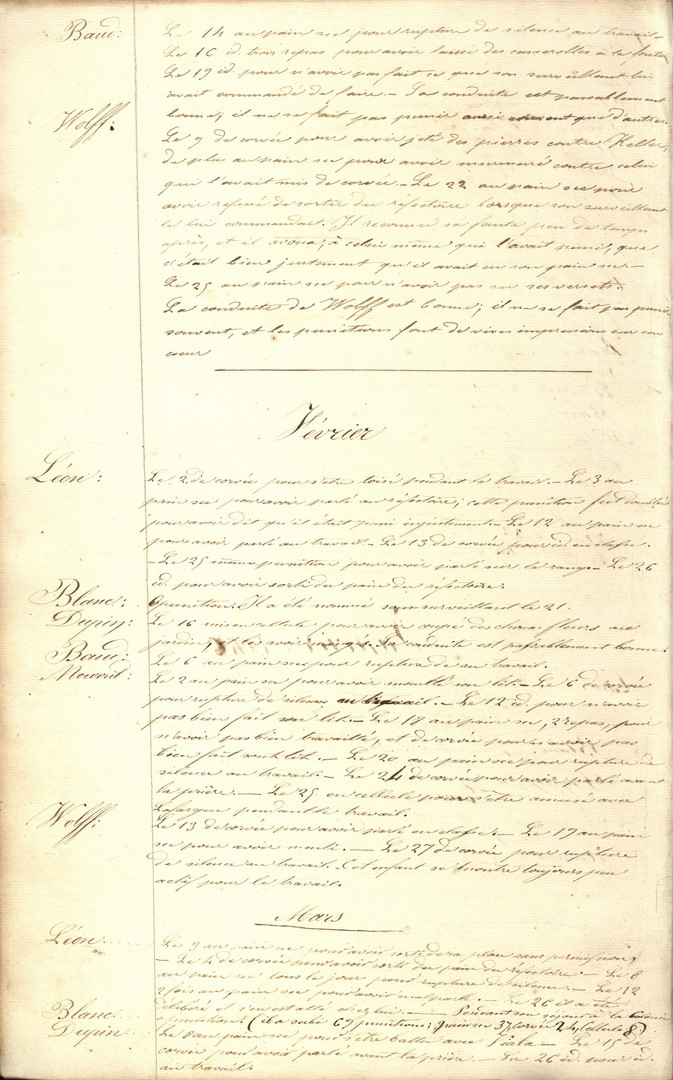 Baud: Le 14 au pain sec pour rupture de silence au travail.-
Le 16 id. trois repas pour avoir laissé des casserolles à la
Le 19 id. pour n'avoir pas fait ce que son surveillant lui
avait commandé de faire.- Sa conduite est passablement
bonne; il ne se fait pas punir aussi souvent que d'autres.
Wolff: Le 9 de corvée pour avoir jeté des pierres contre Keller,
de plus au pain sec pour avoir murmuré contre celui
qui l'avait mis de corvée.- Le 22 au pain sec pour
avoir refusé de sortir du réfectoire lorsque son surveillant
le lui commandait. Il reconnut sa faute peu de temps
après, et il avoua, à celui même qui l'avait puni, que
c'était bien justement qu'il avait eu son pain sec.-
Le 25 au pain sec pour n'avoir pas su ses versets.
La conduite de Wolff est bonne; il ne se fait pas punir
souvent, et les punitions font de vives impressions sur son
coeur
Février
Léon: Le 2 de corvée pour s'être toisé pendant le travail.- Le 3 au
pain sec pour avoir parlé au réfectoire; cette punition fut doublée
pour avoir dit qu'il était puni injustement.- Le 12 au pain sec
pour avoir parlé au travail.- Le 13 de corvée pour id. en classe.
- Le 25 même punition pour avoir parlé sur le rang.- Le 26
id. pour avoir sorti du pain du réfectoire.
Blanc: 0 punition. Il a été nommé sous-surveillant le 21.
Dupin: Le 16 mis en cellule pour avoir coupé des choux-fleurs au
jardin, et les avoir La conduite est passablement bonne.
Baud: Le 6 au pain sec pour rupture de au travail.
Le 2 au pain sec pour avoir mouillé son lit.- Le 6 de corvée
pour rupture de silence au travail.- Le 12 id. pour n'avoir
pas bien fait son lit.- Le 18 au pain sec, 2 repas, pour
n'avoir pas bien travaillé, et de corvée pour n'avoir pas
bien fait son lit.- Le 20 au pain sec pour rupture de
silence au travail.- Le 24 de corvée pour avoir parlé avant
la prière.- Le 25 en cellule pour s'être amusé avec
Lafargue pendant le travail.
Wolff: Le 13 de corvée pour avoir parlé en classe.- Le 19 au pain
sec pour avoir menti.- Le 27 de corvée pour rupture
de silence au travail. Cet enfant se montre toujours peu
actif pour le travail.
Mars
Léon Le 3 au pain sec pour avoir sorti de sa place sans permission;
- Le 4 de corvée pour avoir sorti du pain du réfectoire.- Le 8
au pain sec tous le jour pour rupture de silence.- Le 12
2 fois au pain sec pour avoir mal parlé.- Le 26 il a été
libéré et s'en est allé chez lui.- Pendant son séjour à la Colonie
(il a subi 69 punitions; pain sec 37, corvée 24, cellule 8)
Blanc 0 punition
Dupin Le 8 au pain sec pour s'être battu avec Viala.- Le 15 de
corvée pour avoir parlé avant la prière.- Le 26 id. pour id.
au travail.